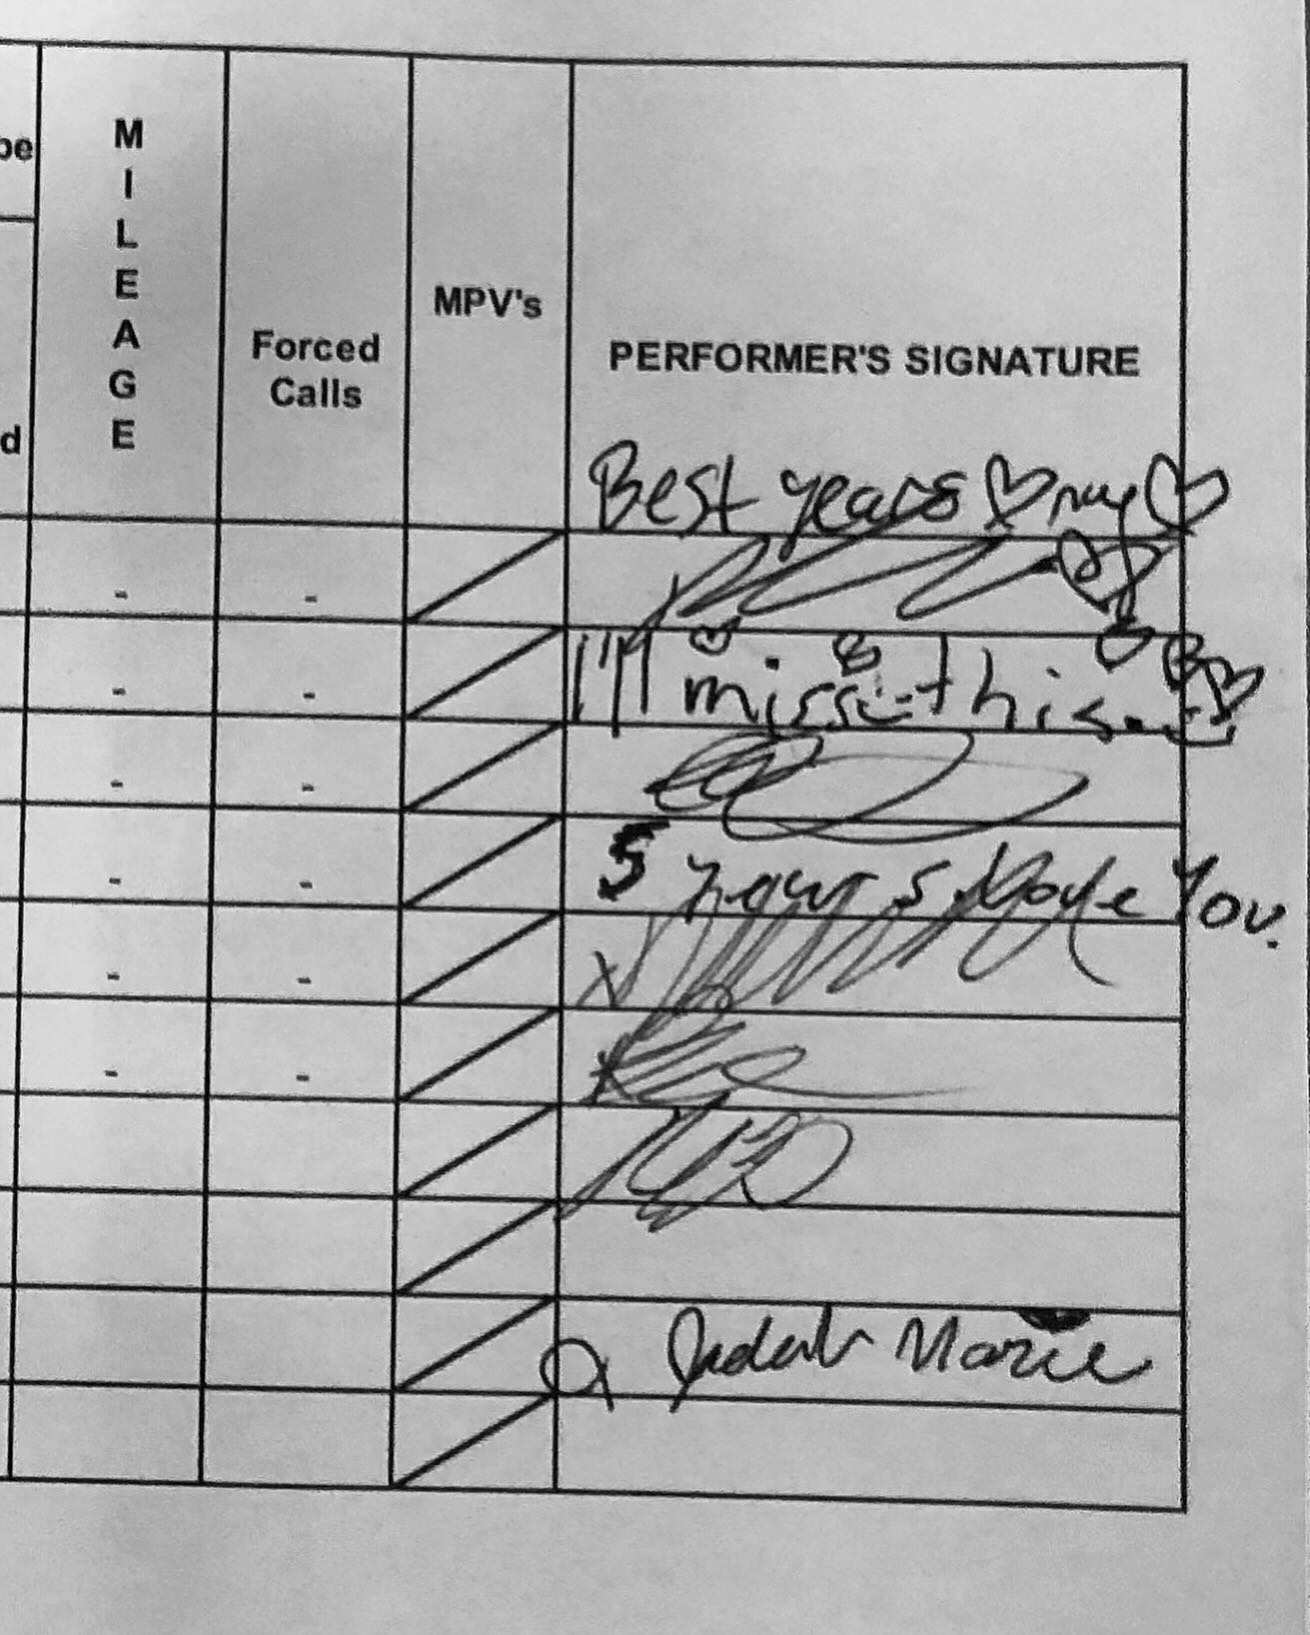 pe
d
MILEAGE
Forced
Calls
MPV's
PERFORMER'S SIGNATURE
Best years ♡ my ♡
- -
- - I'll miss this
- -
- - 5 years. Love You.
- -
- -
Marie